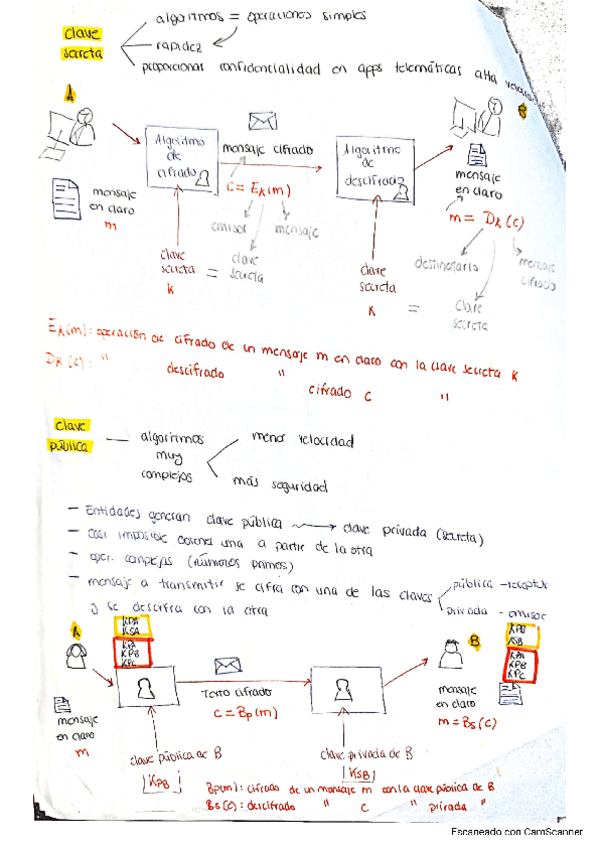 clave secreta
algoritmos = operaciones simples
rapidez
proporcionar confidencialidad en apps telemáticas alta
A
B
Algoritmo de cifrado
mensaje cifrado
Algoritmo de descifrado
mensaje en claro
m
C = Ek(m)
mensaje en claro
m = Dk (c)
emisor
clave secreta
mensaje
destinatario
clave secreta
mensaje cifrado
clave secreta
k
=
clave secreta
K
=
Ek(m): operación de cifrado de un mensaje m en claro con la clave secreta k
Dk (c): " descifrado " cifrado c "
clave pública
algoritmos muy complejos
menor velocidad
más seguridad
- Entidades generan clave pública → clave privada (secreta)
- casi imposible conocer una a partir de la otra
- oper. complejas (números primos)
- mensaje a transmitir se cifra con una de las claves
pública - receptor
privada - emisor
y se descifra con la otra
A
KPA
KSA
KPA
KPB
KPC
B
KPB
KSB
KPA
KPB
KPC
mensaje en claro
m
Texto cifrado
C = Bp(m)
mensaje en claro
m = Bs (c)
clave pública de B
KPB
clave privada de B
KSB
Bp(m): cifrado de un mensaje m con la clave pública de B
Bs (c): descifrado " c " privada "
Escaneado con CamScanner